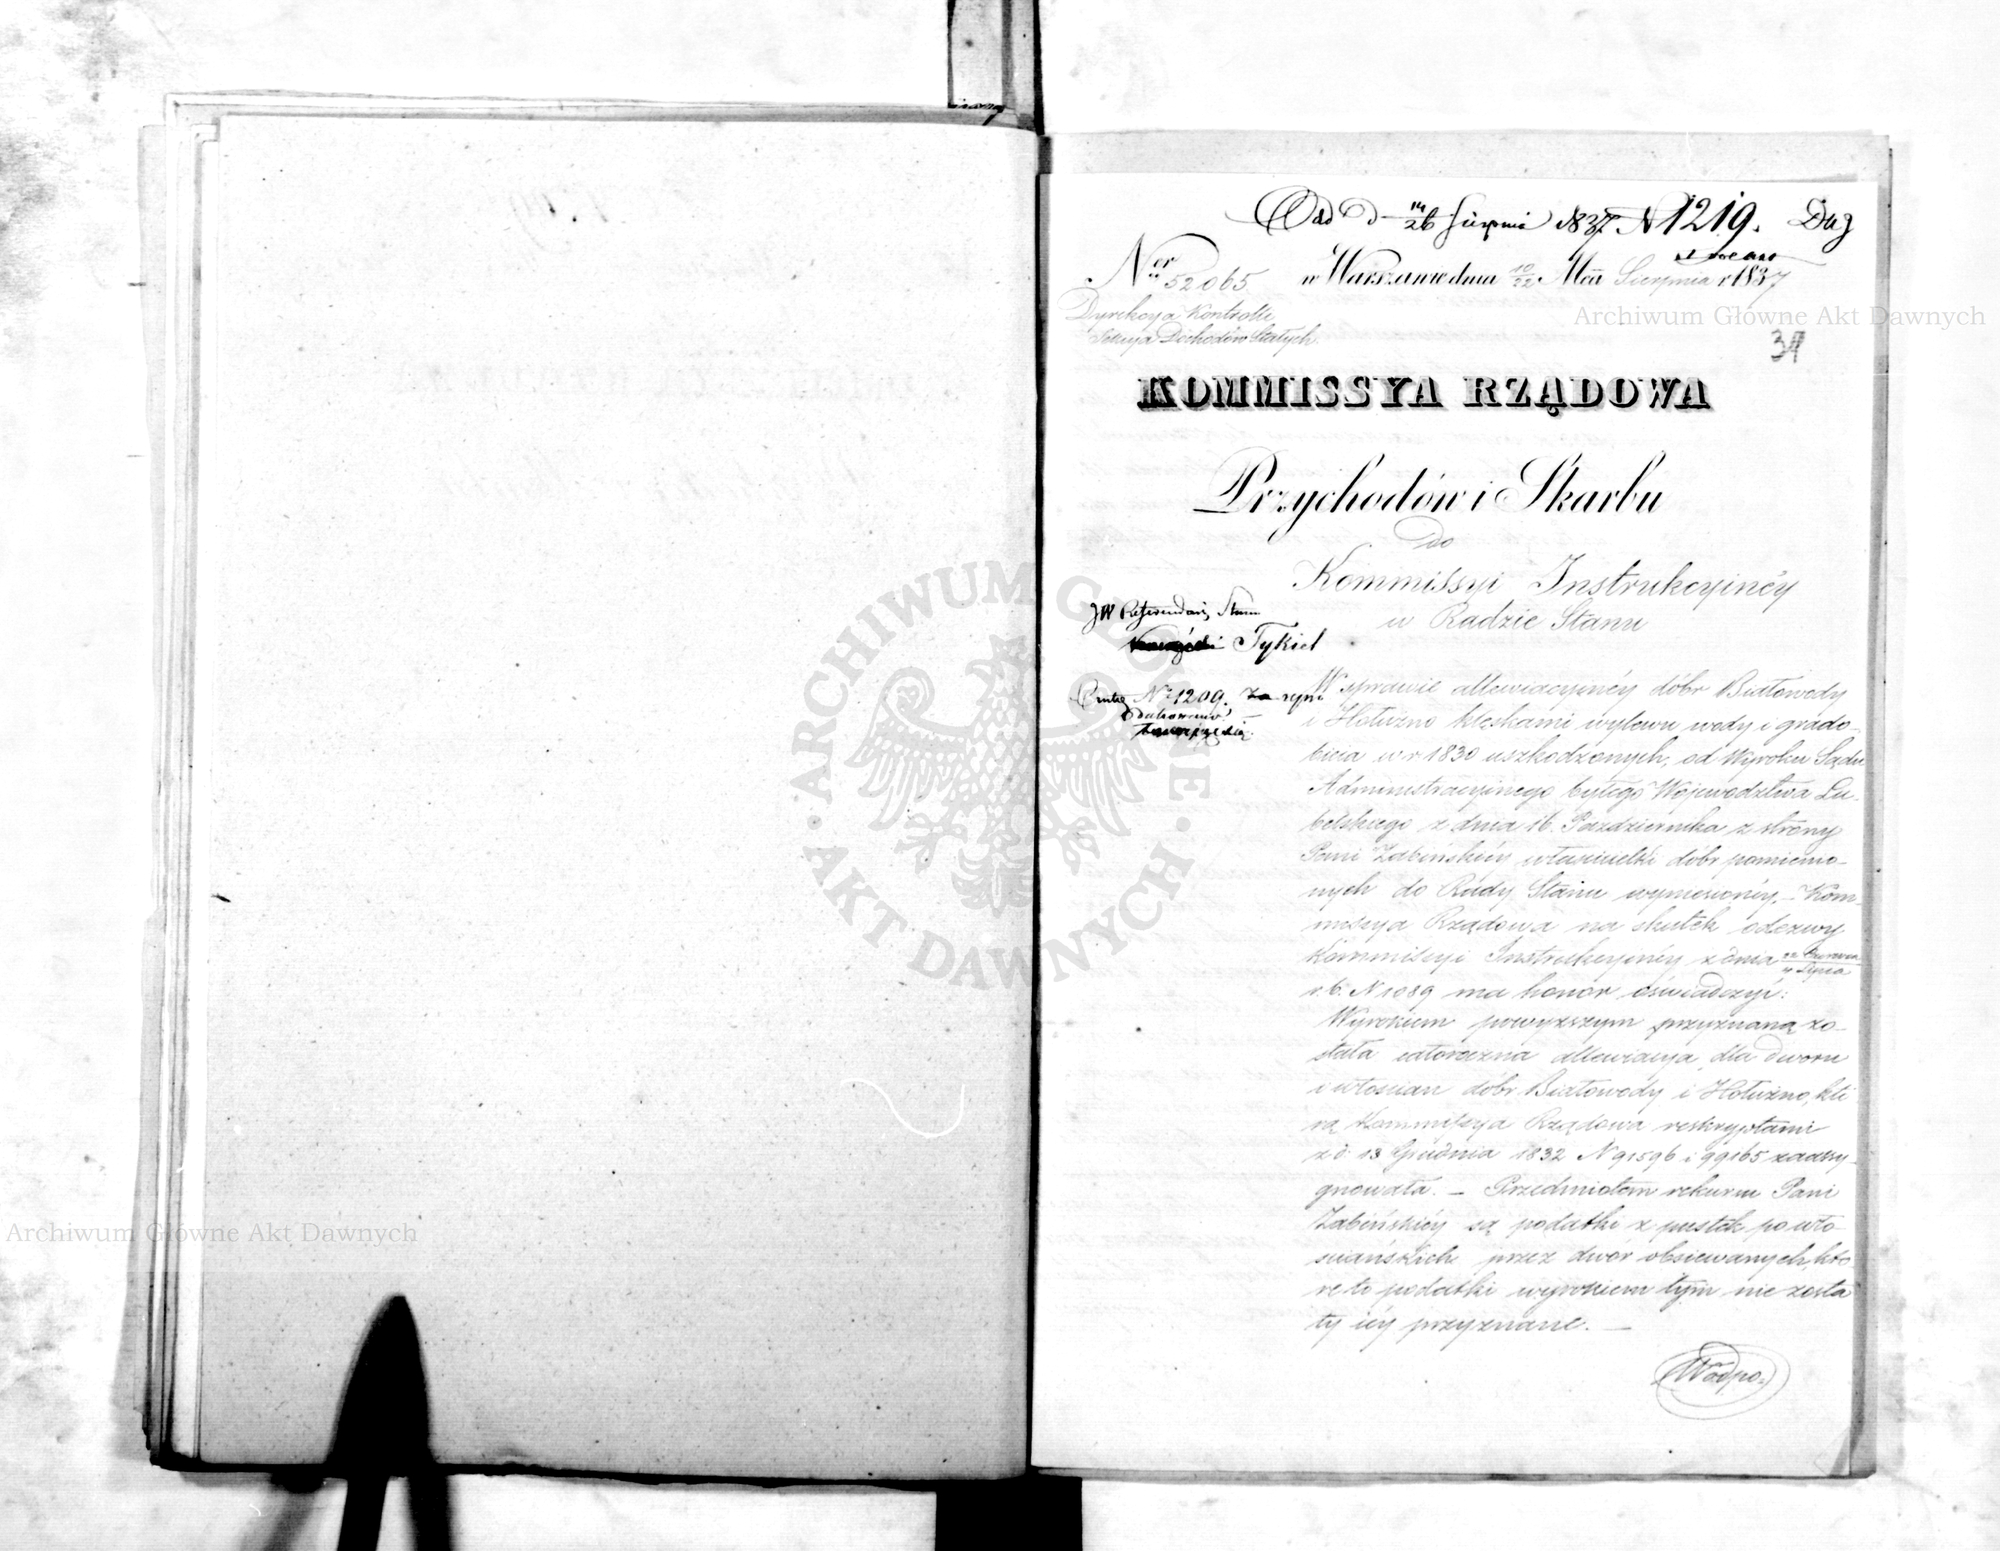 Odd d 14/26 Sierpnia 1837 N 1219.
Ner 52065 w Warszawie dnia 10/22 Mca Sierpnia r 1837
Dyrekcya Kontrolli
Sekcya Dochodów Stałych.
39
KOMMISSYA RZĄDOWA
Przychodów i Skarbu
do
Kommissyi Instrukcyinéy
w Radzie Stanu
JW Referendarz Stanu
Tykiel
N 1209.
W sprawie allewiacyinéy dóbr Białowody
i Hołużno klęskami wylewu wody i grado-
bicia w r 1830 uszkodzonych, od Wyroku Sądu
Administracyinego byłego Województwa Lu-
belskiego z dnia 16. Pazdziernika z strony
Pani Zabińskiéy właścicielki dóbr pomienio-
nych do Rady Stanu wyniesionéy. – Kom-
missya Rządowa na skutek odezwy
Kommissyi Instrukcyinéy z dnia 22 Czerwca/4 Lipca
r. b. N 1089 ma honor oświadczyć:
Wyrokiem powyższym przyznaną zo-
stała całoroczna allewiacya dla dworu
i włościan dóbr Białowody i Hołużno, któ
rą Kommissya Rządowa reskryptami
z d. 13 Grudnia 1832 N 91596 i 99165 zaasy-
gnowała. – Przedmiotem rekursu Pani
Zabińskiéy są podatki z pustek po wło-
ściańskich przez dwór obsiewanych, któ
re to podatki wyrokiem tym nie zosta
ły iéy przyznane. –
Archiwum Główne Akt Dawnych
Archiwum Główne Akt Dawnych
ARCHIWUM GŁÓWNE · AKT DAWNYCH ·